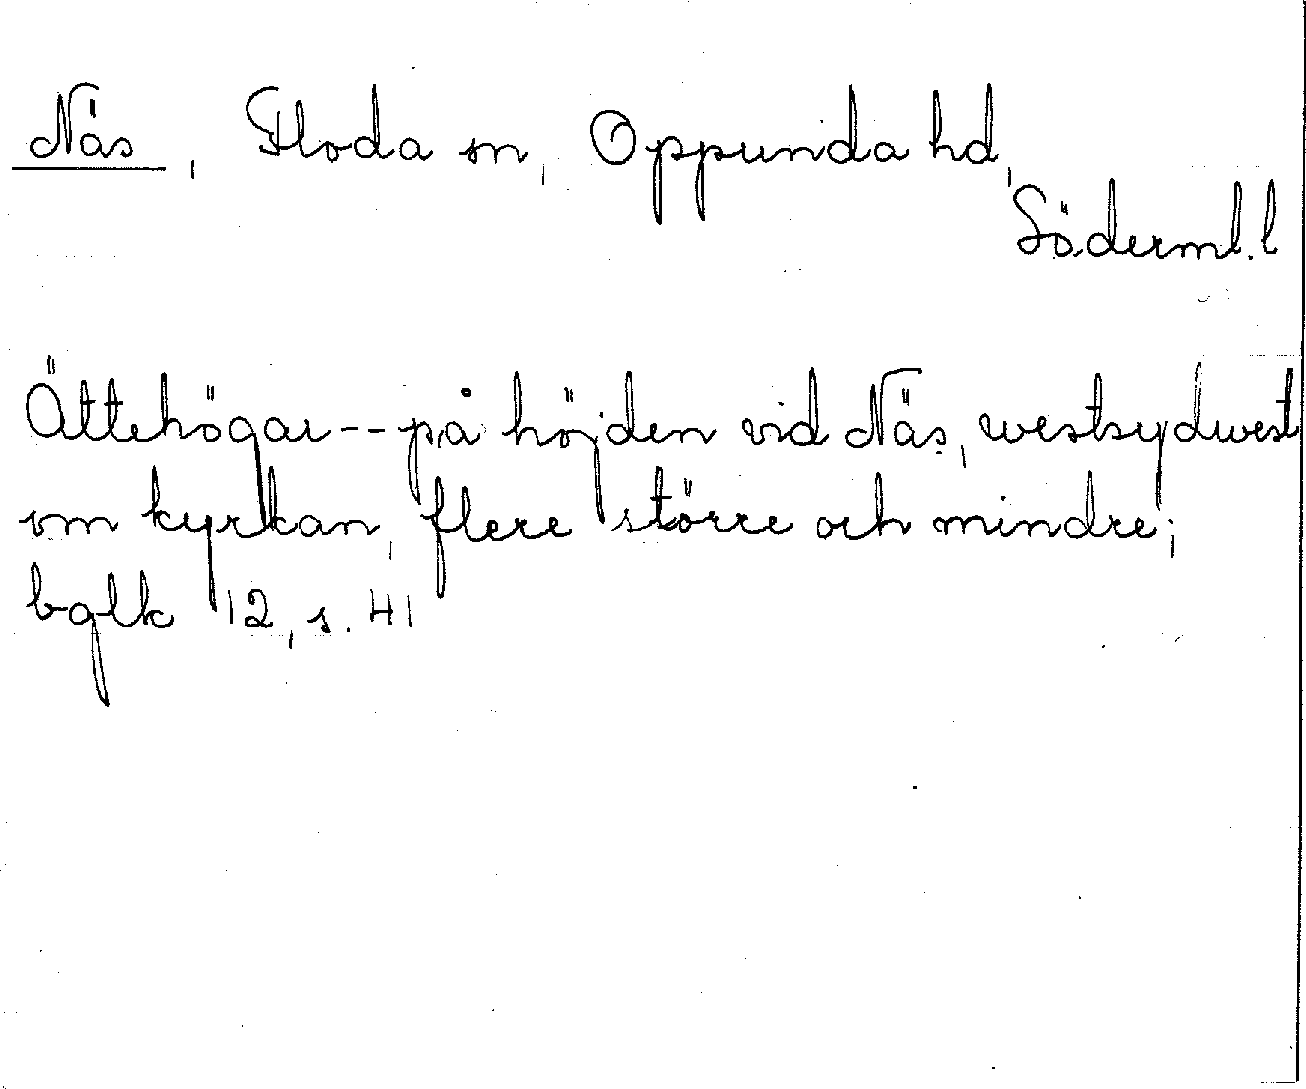 Näs, Floda sn, Oppunda hd,
Söderml. l
Ättehögar -- på höjden vid Näs, westsydwest
om kyrkan, flere större och mindre;
bglk 12, s. 41